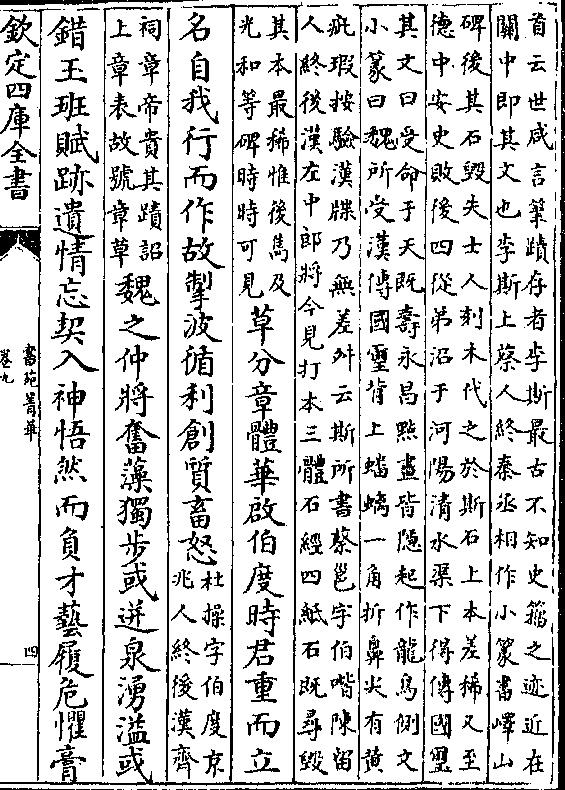 首云世咸言筆蹟存者李斯最古不知史籀之迹近在
關中即其文也李斯上蔡人終秦丞相作小篆書嶧山
碑後其石毀失士人刻木代之於斯石上本差稀又至
德中安史敗後四從弟沼于河陽清水渠下得傳國璽
其文曰受命于天既壽永昌點畫皆隱起作龍鳥倒文
小篆曰魏所受漢傳國璽背上蟠螭一角折鼻尖有黄
疵瑕按驗漢牒乃無差舛云斯所書蔡邕字伯喈陳留
人終後漢左中郎將今見打本三體石經四紙石既尋毀
其本最稀惟後馬及
光和等碑時時可見草分章體華啟伯度時君重而立
名自我行而作故掣波循利創質畜怒杜操字伯度京
兆人終後漢齊
祠章帝貴其蹟詔
上章表故號章草魏之仲將奮藻獨步或迸泉湧溢或
錯玉班賦跡遺情忘契入神悟然而負才藝履危懼膏
欽定四庫全書
書苑菁華
卷九
四